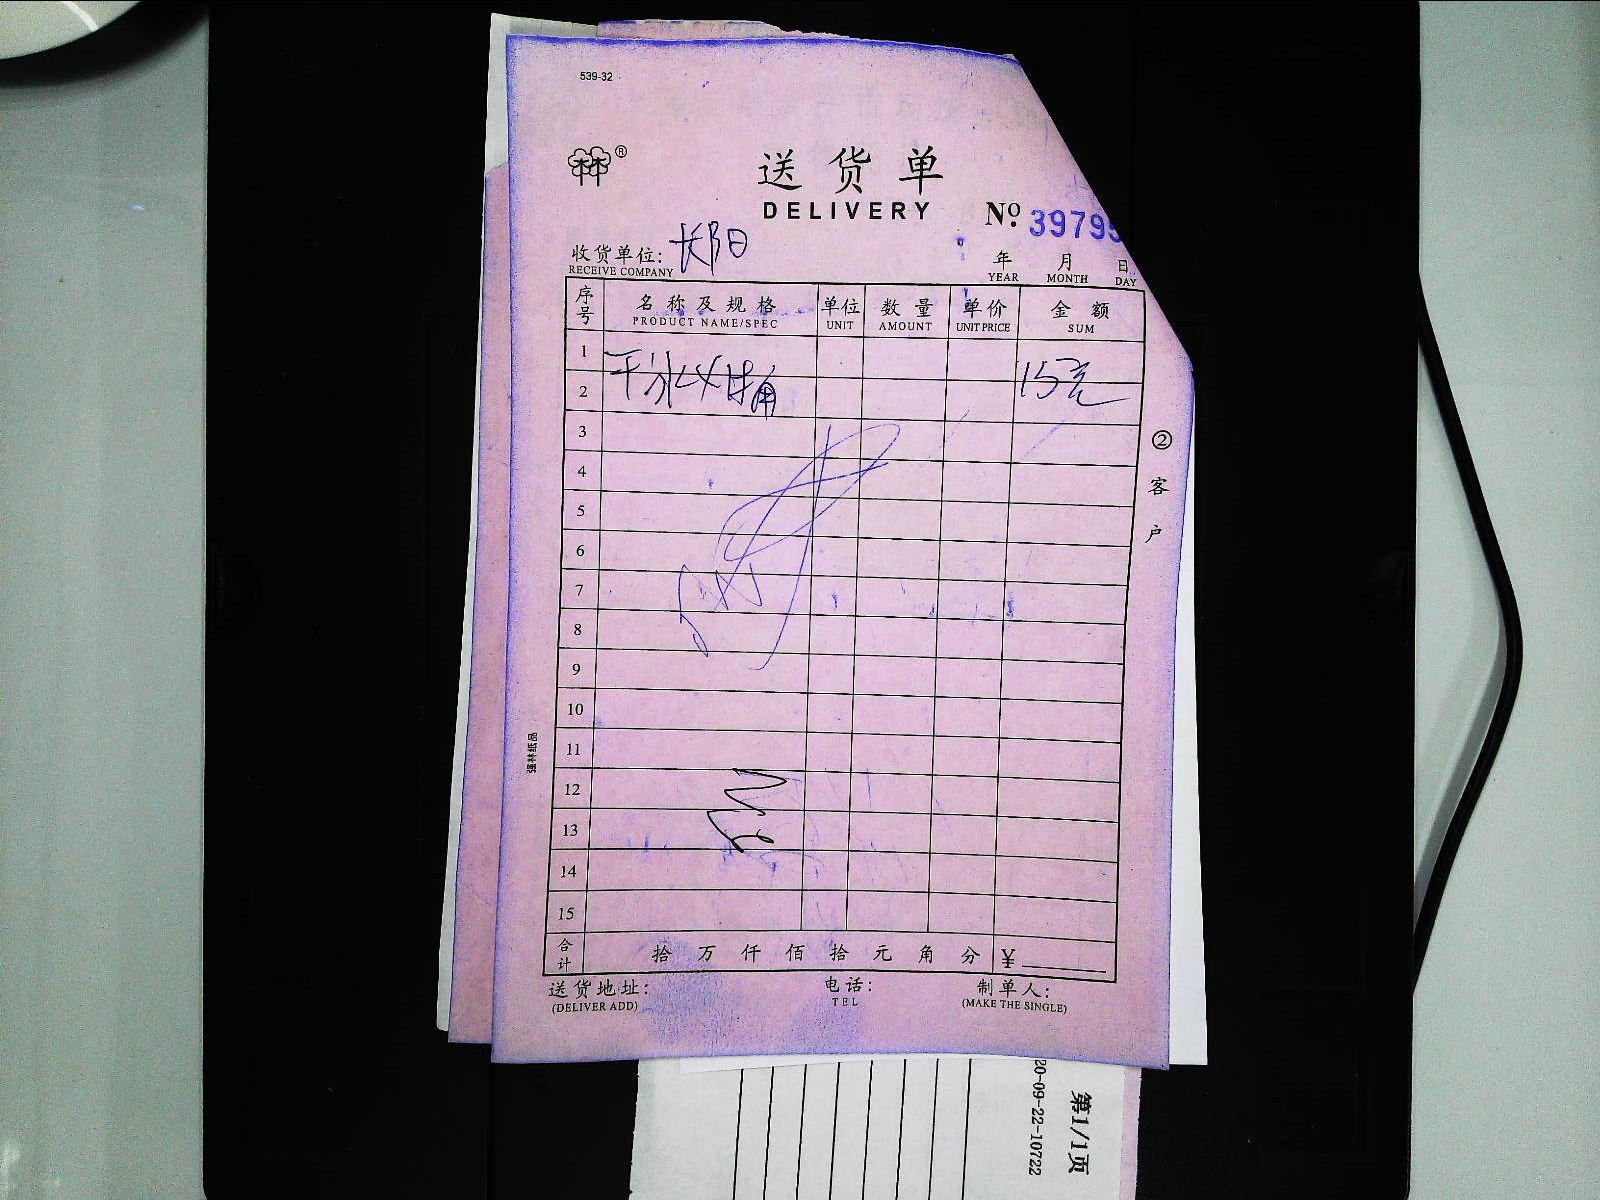 539-32
林®
送货单
DELIVERY
No. 39795
收货单位: 长阳
RECEIVE COMPANY
年 月 日
YEAR MONTH DAY
序号 名称及规格 单位 数量 单价 金额
PRODUCT NAME/SPEC UNIT AMOUNT UNIT PRICE SUM
1
2 15元
3
4
5
6
7
8
9
10
11
12
13
14
15
合计 拾 万 仟 佰 拾 元 角 分 ¥
送货地址: 电话: 制单人:
(DELIVER ADD) TEL (MAKE THE SINGLE)
② 客户
强林纸品
第1/1页
20-09-22-10722